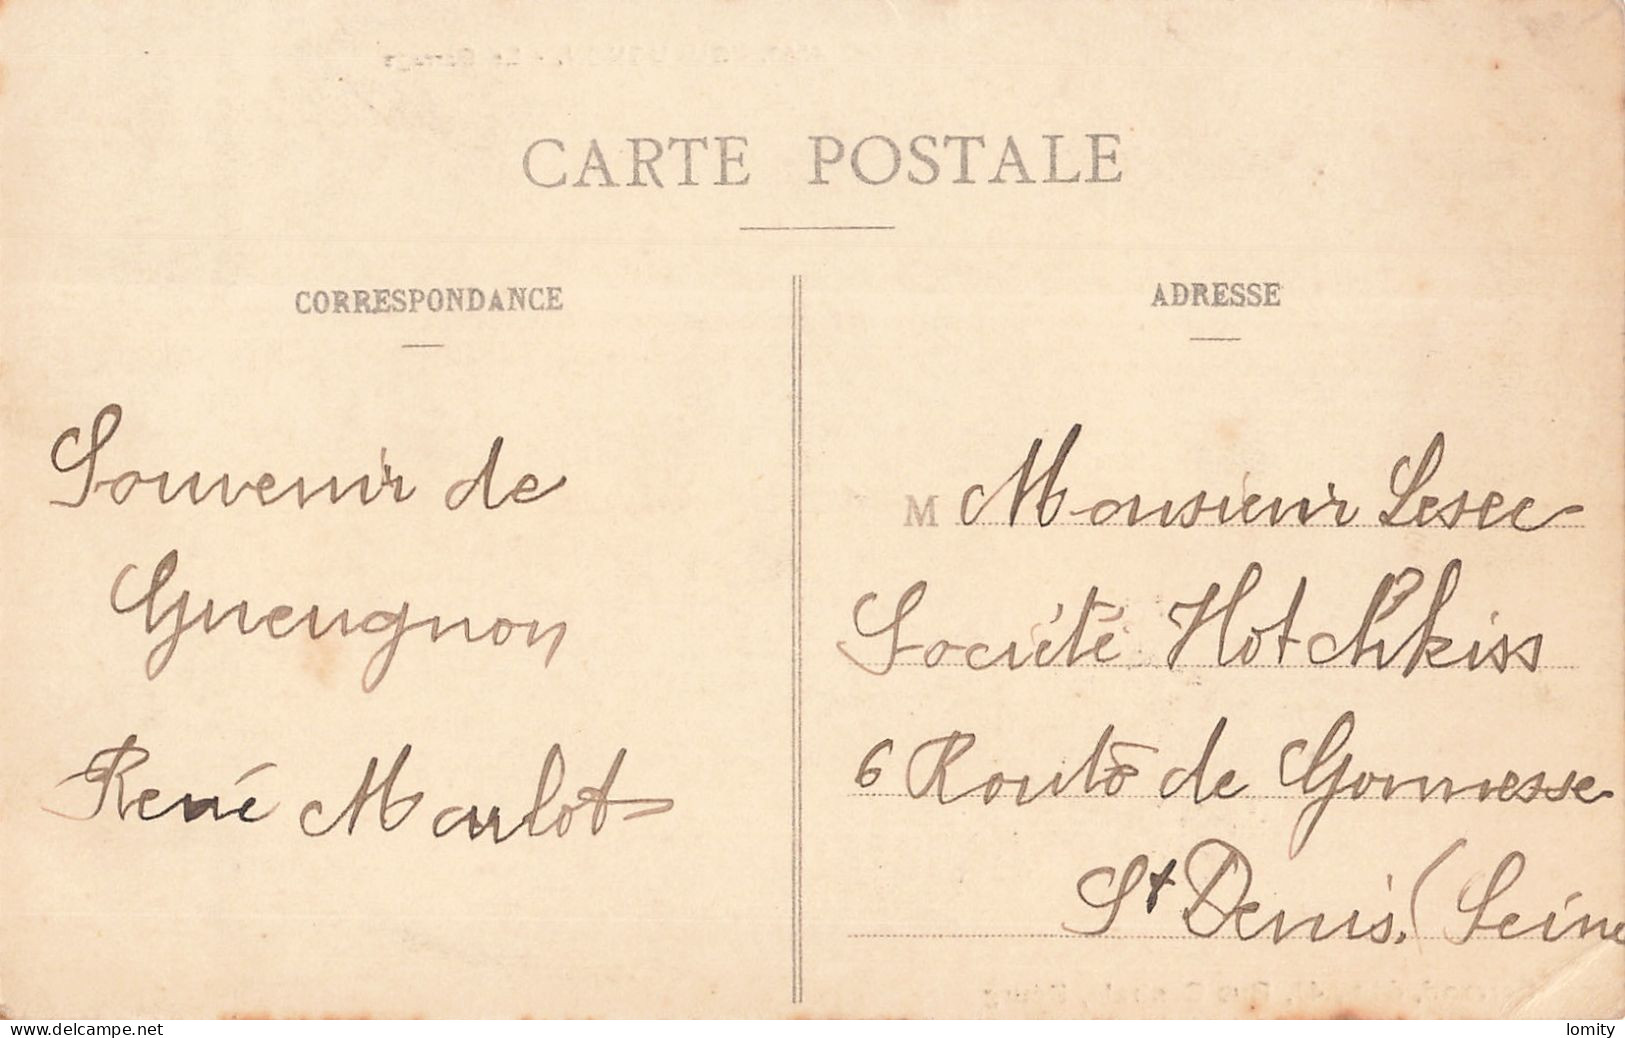 CARTE POSTALE
CORRESPONDANCE
Souvenir de
Gueugnon
René Marlot
ADRESSE
M Monsieur Lesec
Société Hotchkiss
6 Route de Gonnesse
St Denis. (Seine
www.delcampe.net
lomity